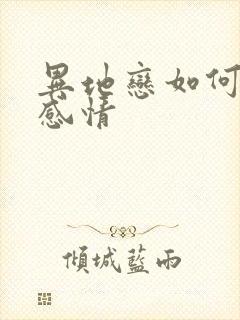 異地戀如何
感情
傾城藍雨